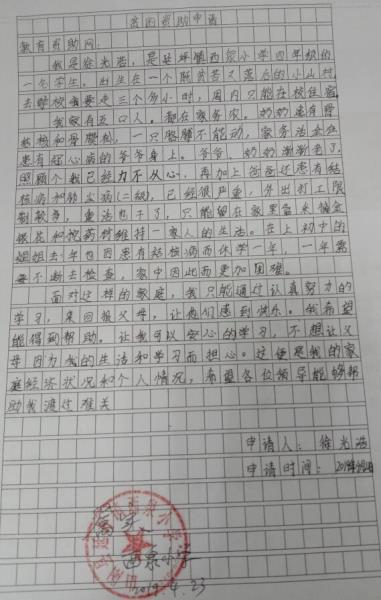 贫困资助申请
教育资助网：
我是徐光浩，是延坪镇西泉小学四年级的
一名学生。出生在一个贫苦又落后的小山村，
去学校我要走三个多小时，周内只能在校住宿。
我家有五口人。都在家务农。奶奶患有骨
结核和骨髓炎，一只胳膊不能动，家务活全在
患有冠心病的爷爷身上。爷爷、奶奶渐渐老了，
照顾个我已经力不从心，再加上爸爸还患有结
核病和肺尘病(二级)，已经很严重，外出打工限
制较多，重活也干了，只能留在家里靠采摘金
银花和挖药材维持一家人的生活。在上初中的
姐姐去年也因患有结核病而休学一年，一年需
要不断去检查，家中因此而更加困难。
面对这样的家庭，我只能通过认真努力的
学习，来回报父母，让他们感到快乐。我希望
能得到帮助。让我可以安心的学习，不想让父
母因为我的生活和学习而担心。这便是我的家
庭经济状况和个人情况，希望各位领导能够帮
助我渡过难关
申请人：徐光浩
申请时间：2019年
属实
西泉小学
2019.4.23